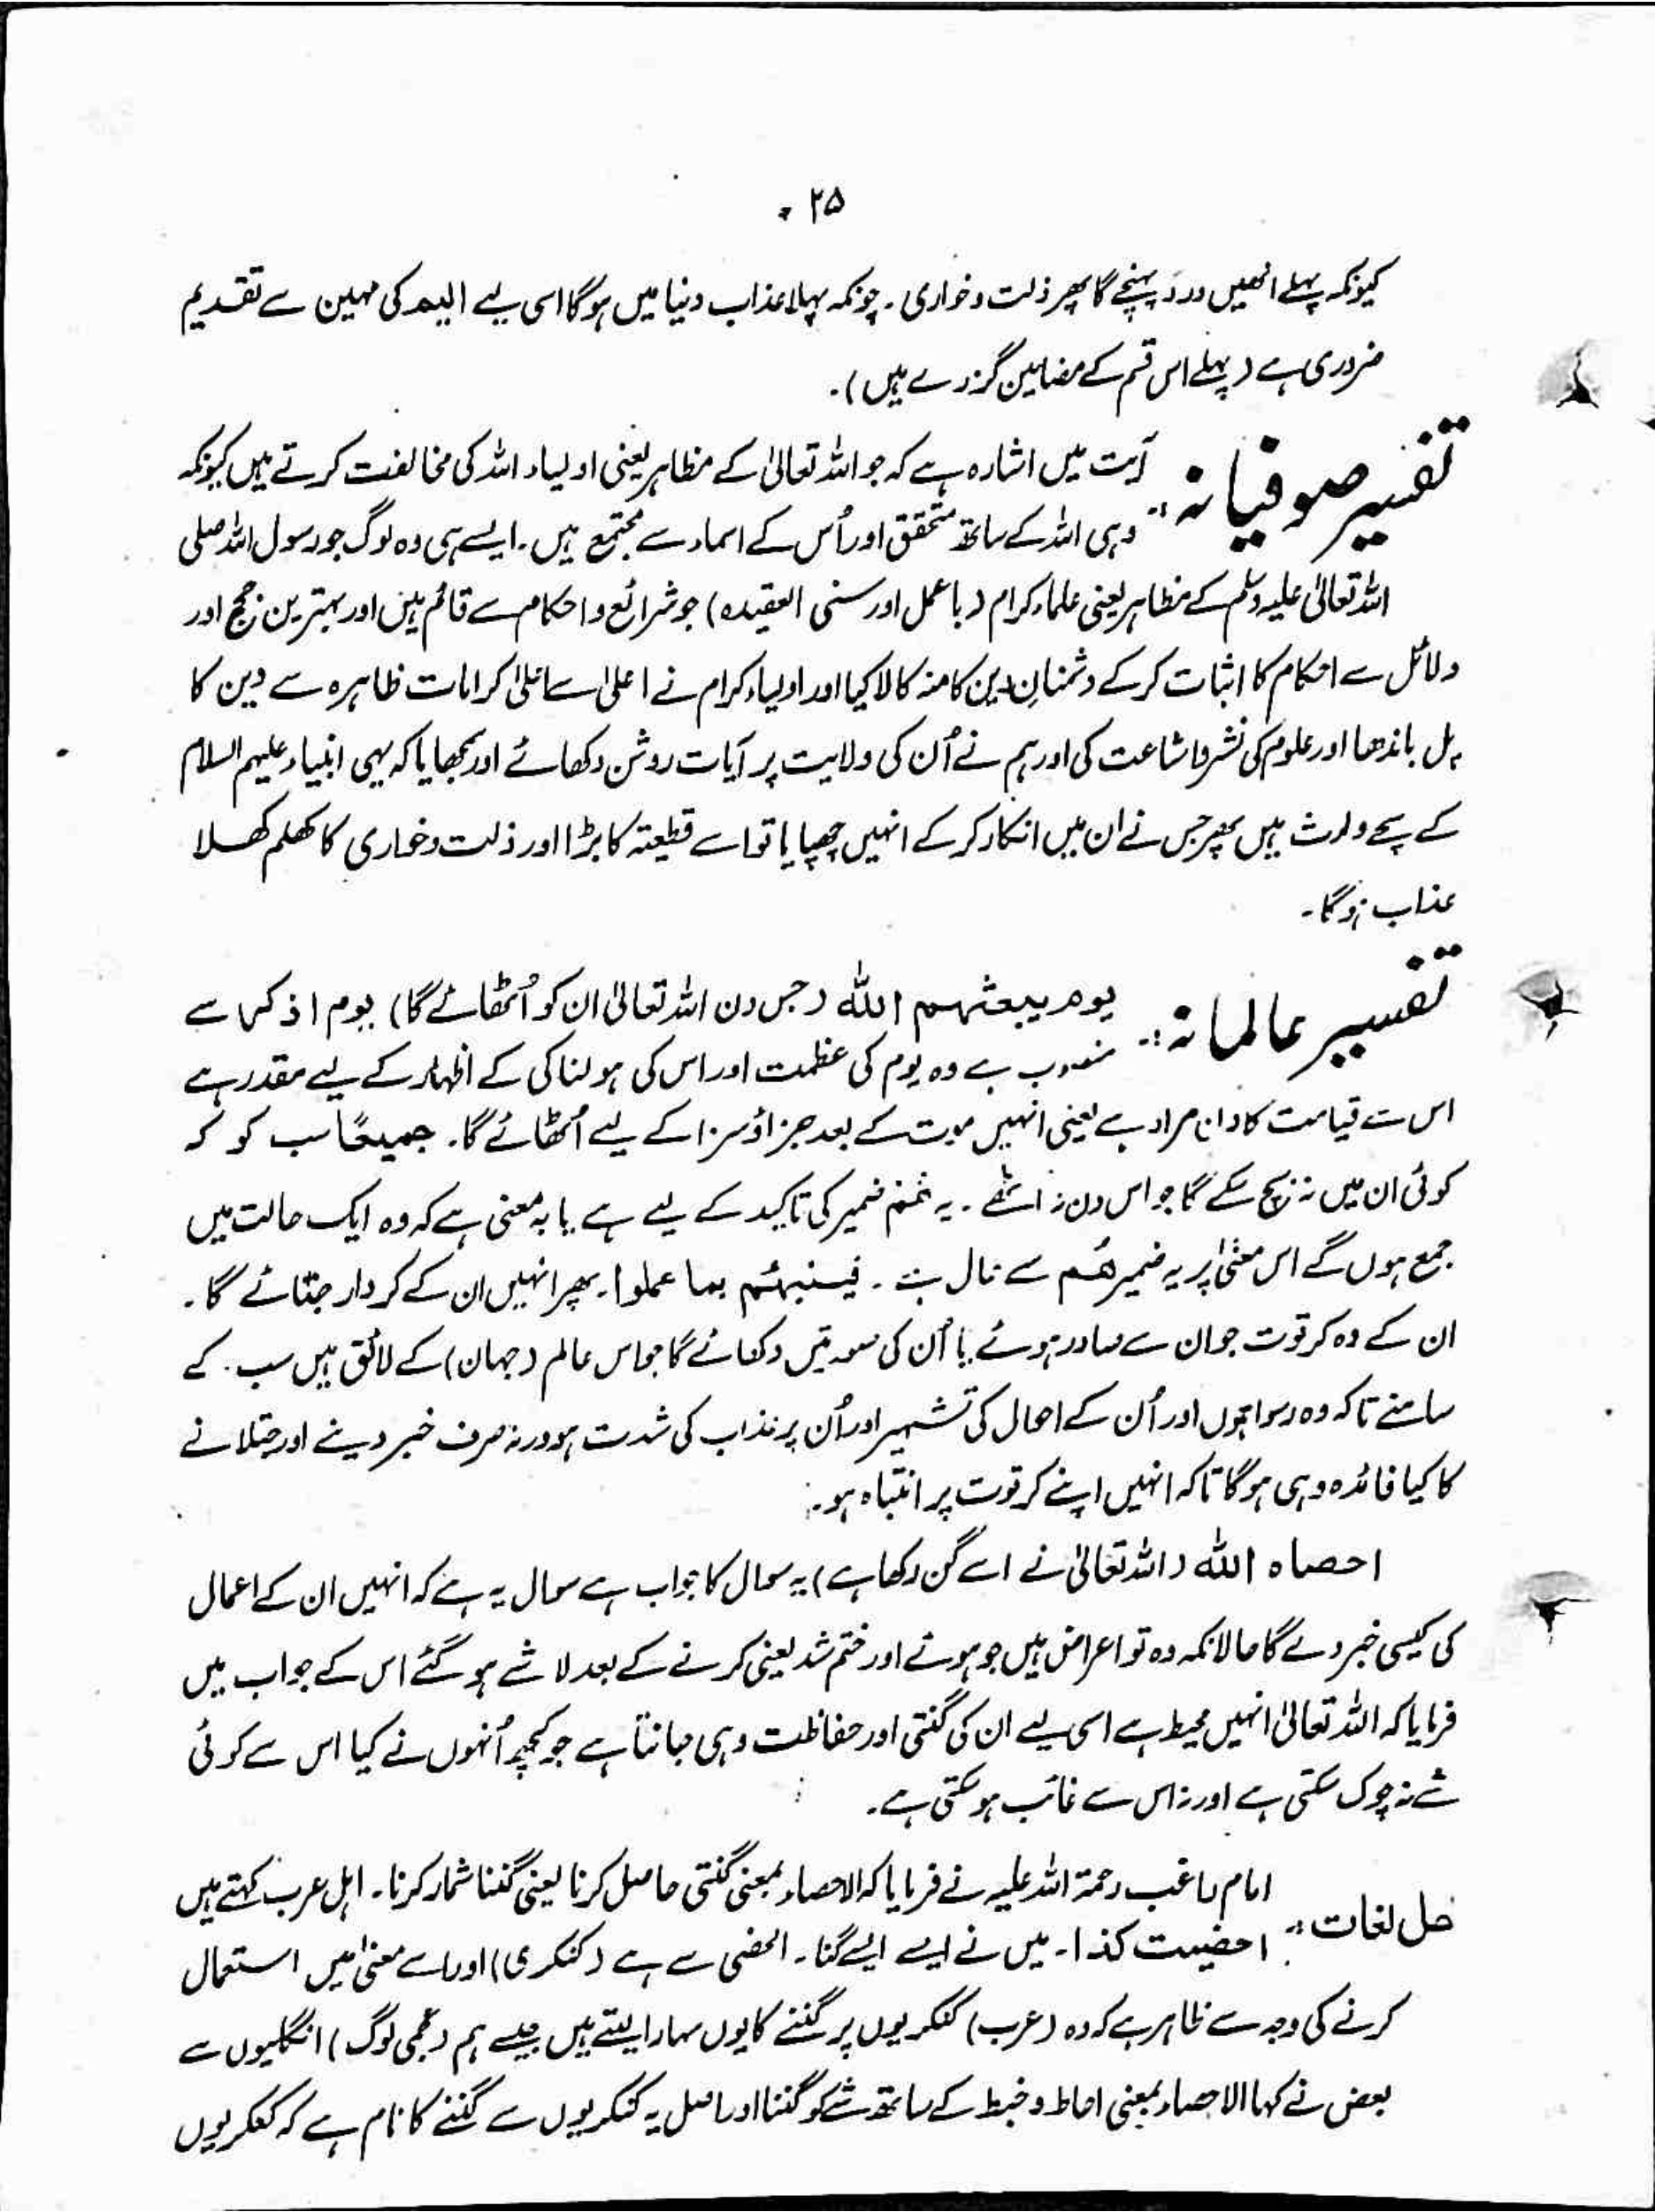 ۲۵
کیونکہ پہلے انھیں درد پہنچے گا پھر ذلت و خواری ۔ چونکہ پہلا عذاب دنیا میں ہوگا اسی لیے الیم کی مہین سے تقدیم
ضروری ہے (پہلے اس قسم کے مضامین گزرے ہیں)۔
تفسیر صوفیانہ :۔ آیت میں اشارہ ہے کہ جو اللہ تعالیٰ کے مظاہر یعنی اولیاء اللہ کی مخالفت کرتے ہیں کیونکہ
وہی اللہ کے ساتھ متحقق اور اُس کے اسماء سے مجتمع ہیں ۔ ایسے ہی وہ لوگ جو رسول اللہ صلی
اللہ تعالیٰ علیہ وسلم کے مظاہر یعنی علماء کرام (باعمل اور سنی العقیدہ) جو شرائع و احکام سے قائم ہیں اور بہترین حجج اور
دلائل سے احکام کا اثبات کرکے دشمنانِ دین کا منہ کالا کیا اور اولیاء کرام نے اعلیٰ سے اعلیٰ کرامات ظاہرہ سے دین کا
پل باندھا اور علوم کی نشر و اشاعت کی اور ہم نے اُن کی ولایت پر آیات روشن دکھائے اور سمجھایا کہ یہی انبیاء علیہم السلام
کے سچے وارث ہیں پھر جس نے ان میں انکار کرکے انہیں چھپایا تو اسے قطیعتہ کا بڑا اور ذلت و خواری کا کھلم کھلا
عذاب ہوگا۔
تفسیر عالمانہ :۔ یوم یبعثہم اللہ (جس دن اللہ تعالیٰ ان کو اُٹھائے گا) یوم اذکر سے
منصوب ہے وہ یوم کی عظمت اور اس کی ہولناکی کے اظہار کے لیے مقدر ہے
اس سے قیامت کا دن مراد ہے یعنی انہیں موت کے بعد جزاؤ سزا کے لیے اُٹھائے گا۔ جمیعًا سب کو کہ
کوئی ان میں نہ بچ سکے گا جو اس دن نہ اٹھے ۔ یہ ھُم ضمیر کی تاکید کے لیے ہے یا بہ معنی ہے کہ وہ ایک حالت میں
جمع ہوں گے اس معنیٰ پر یہ ضمیر ھُم سے حال ہے ۔ فینبئہم بما عملوا۔ پھر انہیں ان کے کردار جتائے گا ۔
ان کے وہ کرتوت جو ان سے صادر ہوئے یا اُن کی صورتیں دکھائے گا جو اس عالم (جہان) کے لائق ہیں سب کے
سامنے تاکہ وہ رسوا ہوں اور اُن کے احوال کی تشہیر اور اُن پر عذاب کی شدت ہو ورنہ صرف خبر دینے اور جتلانے
کا کیا فائدہ وہی ہوگا تاکہ انہیں اپنے کرتوت پر انتباہ ہو۔
احصاہ اللہ (اللہ تعالیٰ نے اسے گن رکھا ہے) یہ سوال کا جواب ہے سوال یہ ہے کہ انہیں ان کے اعمال
کی کیسی خبر دے گا حالانکہ وہ تو اعراض ہیں جو ہوتے اور ختم شد یعنی کرنے کے بعد لاشے ہو گئے اس کے جواب میں
فرمایا کہ اللہ تعالیٰ انہیں محیط ہے اسی لیے ان کی گنتی اور حفاظت وہی جانتا ہے جو کچھ اُنہوں نے کیا اس سے کوئی
شے نہ چوک سکتی ہے اور نہ اس سے غائب ہو سکتی ہے۔
حل لغات :۔ امام راغب رحمۃ اللہ علیہ نے فرمایا کہ الاحصاء بمعنی گنتی حاصل کرنا یعنی گننا شمار کرنا۔ اہل عرب کہتے ہیں
احضیت کذا۔ میں نے ایسے ایسے گنا۔ الحضی سے ہے (کنکری) اور اسے معنیٰ میں استعمال
کرنے کی وجہ سے ظاہر ہے کہ وہ (عرب) کنکریوں پر گننے کا یوں سہارا لیتے ہیں جیسے ہم (عجمی لوگ) انگلیوں سے
بعض نے کہا الاحصاء بمعنی احاط و ضبط کے ساتھ شے کو گننا اور اصل یہ کنکریوں سے گننے کا نام ہے کہ کنکریوں